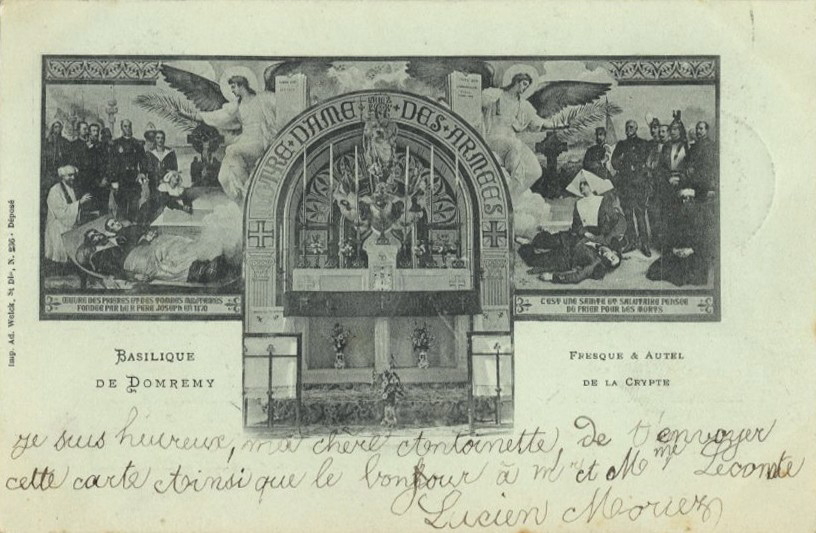 NTRE · DAME · DES · ARMÉES
ŒUVRE DES PRIERES ET DES TOMBES MILITAIRES
FONDÉE PAR LE R PERE JOSEPH EN 1870
C'EST UNE SAINTE ET SALUTAIRE PENSÉE
DE PRIER POUR LES MORTS
Imp. Ad. Weick, St Dié, N. 236 - Déposé
BASILIQUE
DE DOMREMY
FRESQUE & AUTEL
DE LA CRYPTE
je suis huireuse, ma chère Antoinette, de t'envoyer
cette carte Ainsi que le bonjour à mr et Mme Lecomte
Lucien